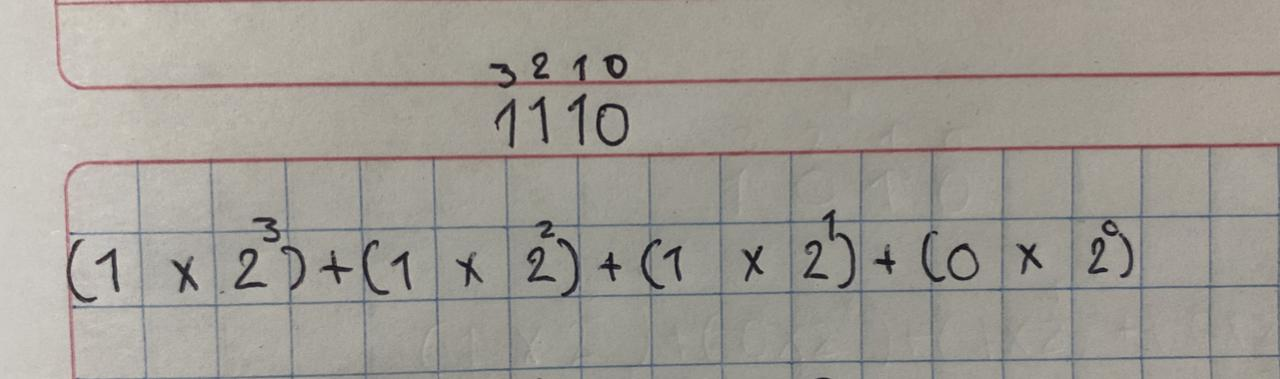 3 2 1 0
1110
(1 x 2³) + (1 x 2²) + (1 x 2¹) + (0 x 2⁰)